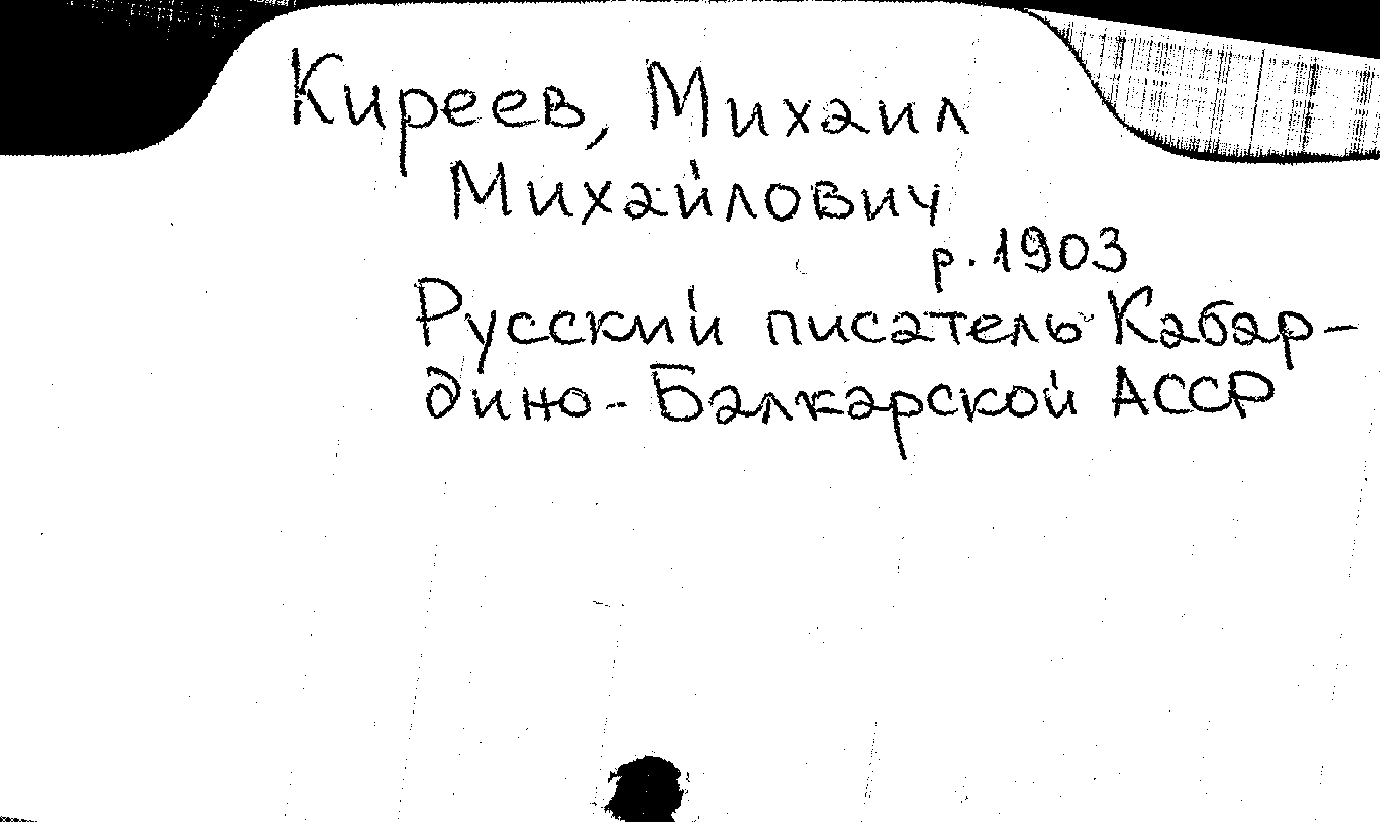 Киреев, Михаил
Михайлович
р. 1903
Русский писатель Кабар-
дино-Балкарской АССР